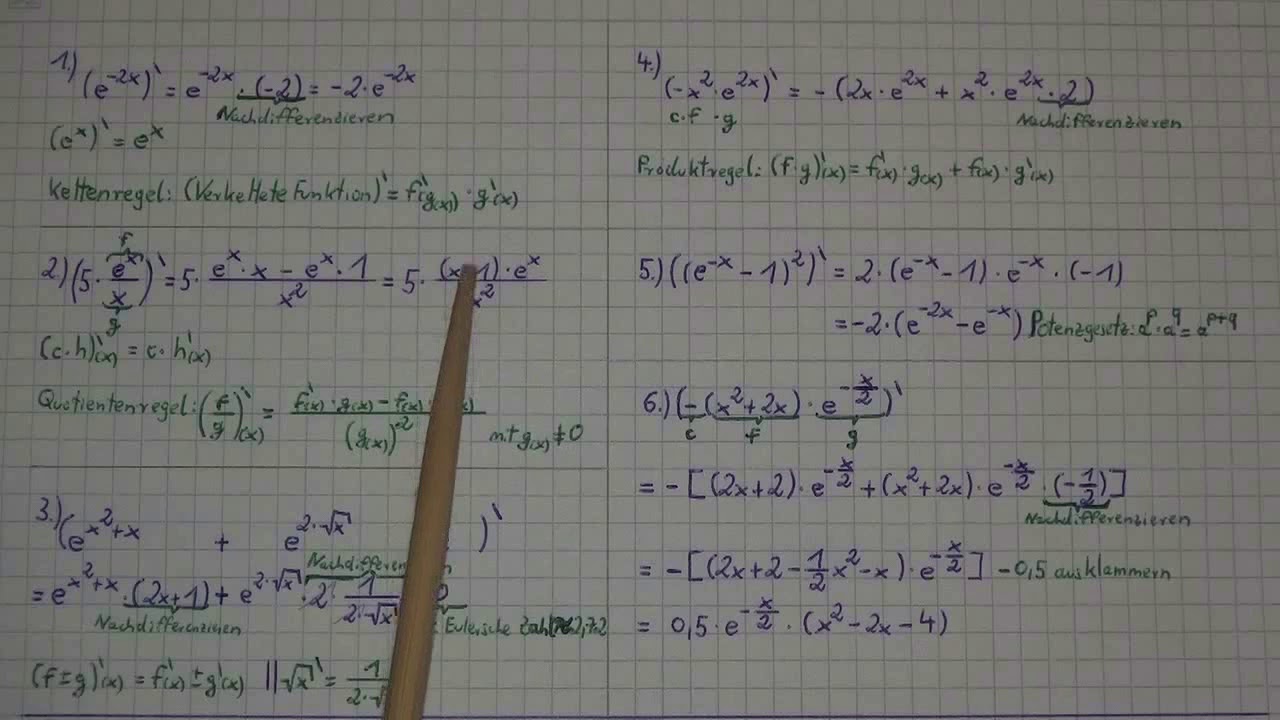 1.) (e^-2x)` = e^-2x · (-2) = -2·e^-2x
Nachdifferenzieren
(e^x)` = e^x
Kettenregel: (Verkettete Funktion)` = f`(g(x)) · g`(x)
f
2) (5 · e^x/x)` = 5 · (e^x · x - e^x · 1)/x^2 = 5 · ((x-1) · e^x)/x^2
g
(c·h)`(x) = c · h`(x)
Quotientenregel: (f/g)`(x) = (f`(x) · g(x) - f(x) · (x))/(g(x))^2 mit g(x) ≠ 0
3.) (e^x^2+x + e^2·√x )`
Nachdifferen
= e^x^2+x · (2x+1) + e^2·√x · 2 · 1/(2·√x) 0
Nachdifferenzieren
Eulersche Zahl ≈ 2,72
(f±g)`(x) = f`(x) ± g`(x) || √x` = 1/(2·√
4.) (-x^2 · e^2x)` = -(2x · e^2x + x^2 · e^2x · 2)
c·f ·g Nachdifferenzieren
Produktregel: (f·g)`(x) = f`(x) · g(x) + f(x) · g`(x)
5.) ((e^-x - 1)^2)` = 2 · (e^-x - 1) · e^-x · (-1)
= -2 · (e^-2x - e^-x) Potenzgesetz: a^p · a^q = a^p+q
6.) (-(x^2+2x) · e^-x/2)`
c f g
= -[(2x+2) · e^-x/2 + (x^2+2x) · e^-x/2 · (-1/2)]
Nachdifferenzieren
= -[(2x+2-1/2x^2-x) · e^-x/2] -0,5 ausklammern
= 0,5 · e^-x/2 · (x^2-2x-4)